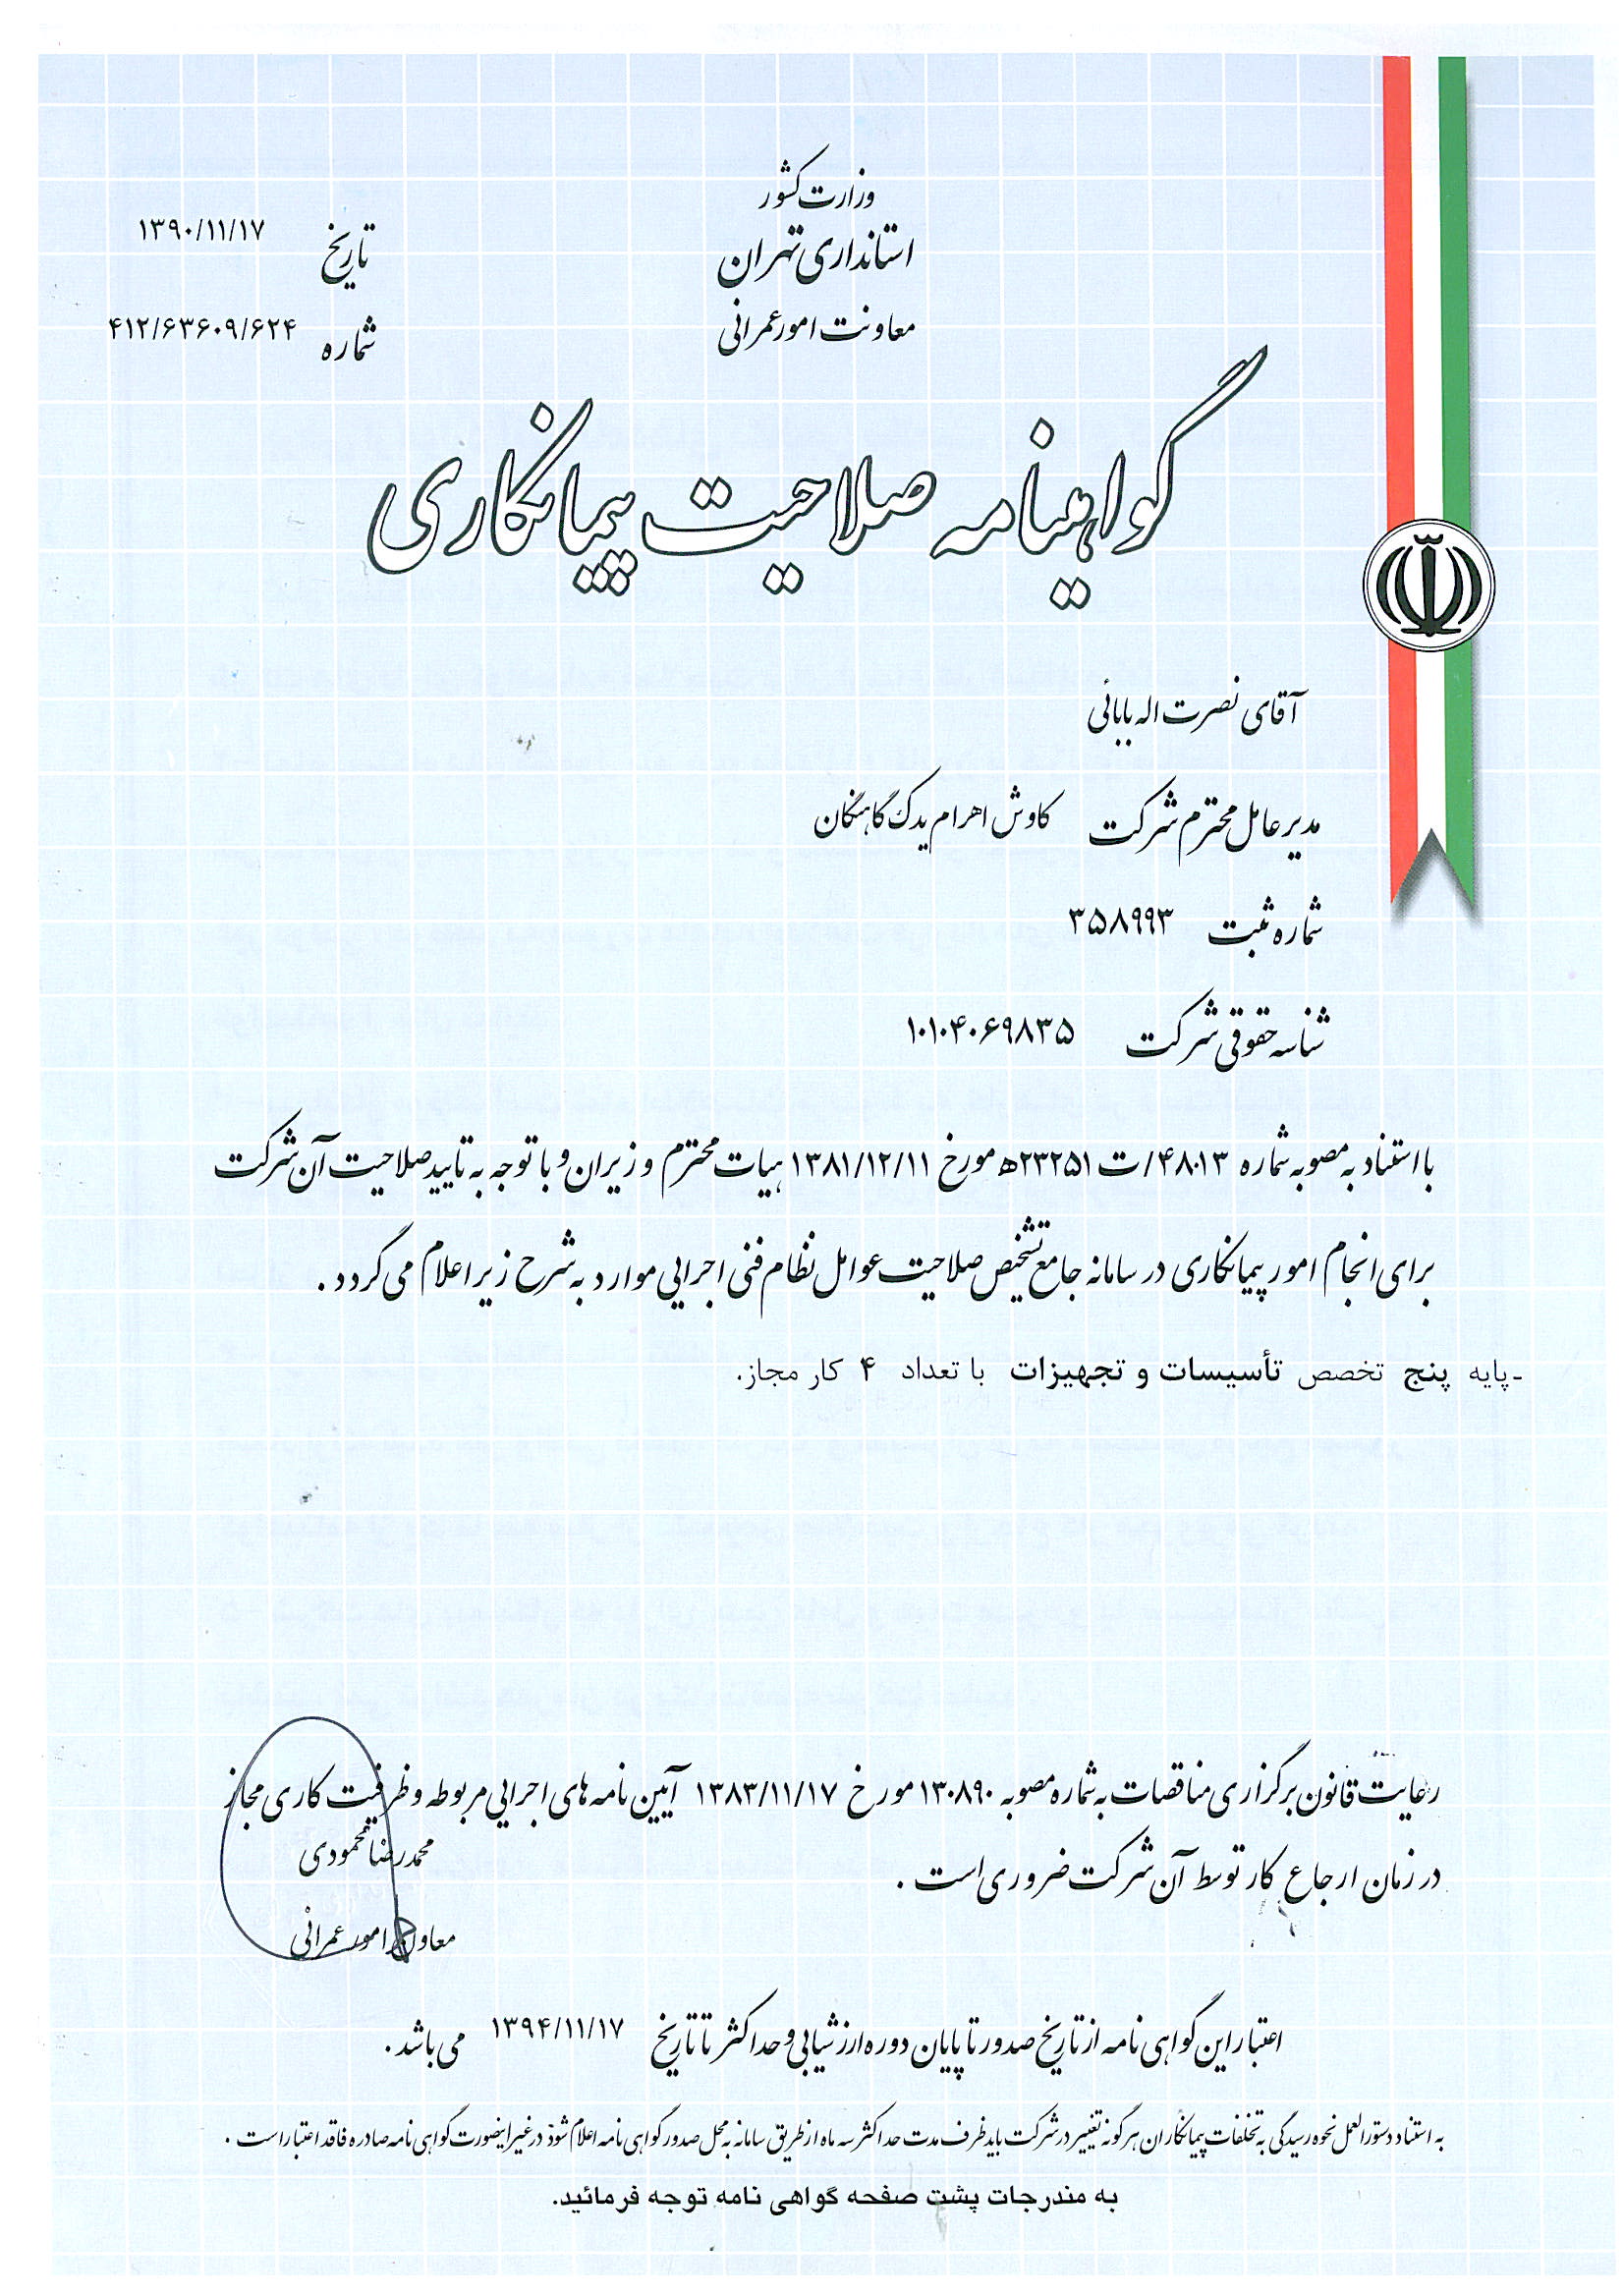 وزارت کشور
استانداری تهران
معاونت امور عمرانی
تاریخ ۱۳۹۰/۱۱/۱۷
شماره ۴۱۲/۶۳۶۰۹/۶۲۴
گواهینامه صلاحیت پیمانکاری
آقای نصرت اله بابائی
مدیر عامل محترم شرکت کاوش اهرام یدک گاهنگان
شماره ثبت ۳۵۸۹۹۳
شناسه حقوقی شرکت ۱۰۱۰۴۰۶۹۸۳۵
با استناد به مصوبه شماره ۴۸۰۱۳/ت۲۳۲۵۱ه مورخ ۱۳۸۱/۱۲/۱۱ هیات محترم وزیران و با توجه به تایید صلاحیت آن شرکت
برای انجام امور پیمانکاری در سامانه جامع تشخیص صلاحیت عوامل نظام فنی اجرایی موارد به شرح زیر اعلام می گردد .
-پایه پنج تخصص تأسیسات و تجهیزات با تعداد ۴ کار مجاز.
رعایت قانون برگزاری مناقصات به شماره مصوبه ۱۳۰۸۹۰ مورخ ۱۳۸۳/۱۱/۱۷ آیین نامه های اجرایی مربوطه و ظرفیت کاری مجاز
در زمان ارجاع کار توسط آن شرکت ضروری است .
محمدرضا محمودی
معاون امور عمرانی
اعتبار این گواهی نامه از تاریخ صدور تا پایان دوره ارزشیابی و حداکثر تا تاریخ ۱۳۹۴/۱۱/۱۷ می باشد .
به استناد دستورالعمل نحوه رسیدگی به تخلفات پیمانکاران هرگونه تغییر در شرکت باید ظرف مدت حداکثر سه ماه از طریق سامانه به محل صدور گواهی نامه اعلام شود در غیر اینصورت گواهی نامه صادره فاقد اعتبار است .
به مندرجات پشت صفحه گواهی نامه توجه فرمائید.